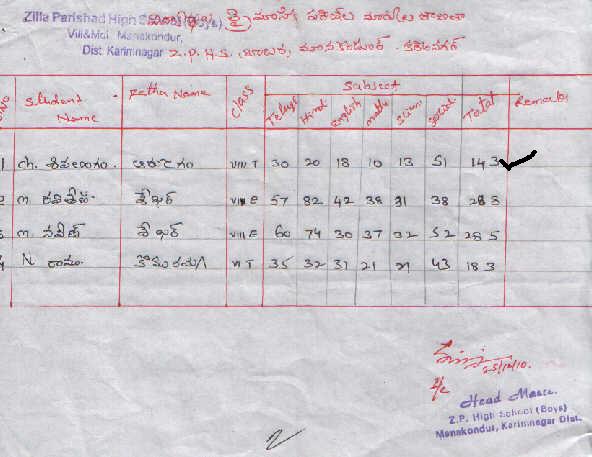 Zilla Parishad High School (Boys)
Vill&Mdl. Manakondur,
Dist. Karimnagar
త్రైమాసిక పరీక్షల మార్కుల జాబితా
Z.P.H.S. (బాలుర), మానకొండూర్ కరీంనగర్
Student Name Father Name Class Subject
Telugu Hindi English maths Sciens Social Total Remarks
1 ch. VIII T 30 20 18 10 13 51 143
2 m. శేఖర్ VIII E 57 82 42 38 31 38 288
3 m. నవీన్ శేఖర్ VIII E 60 74 30 37 32 52 285
4 N రాము VI T 35 32 31 21 21 43 183
25/12/10.
Head Master
Z.P. High School (Boys)
Manakondur, Karimnagar Dist.
2